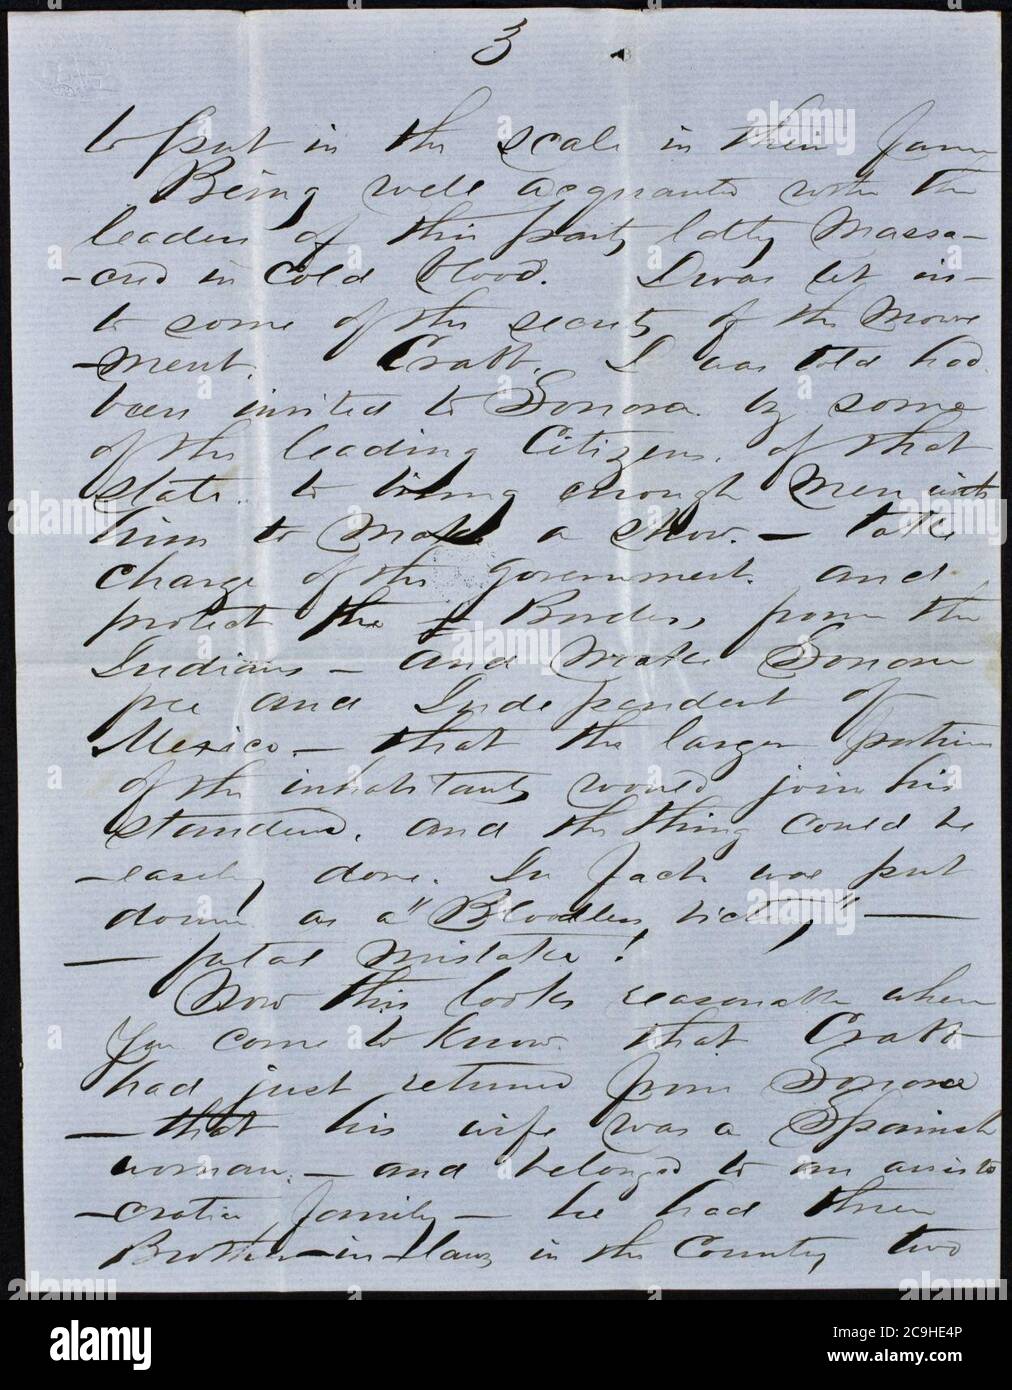 3
to put in the scale in their favor
Being well acquainted with the
leaders of this party lately Massa-
-cred in cold blood. I was let in-
to some of the secrets of the Move
-ment. Crabb, I was told had
been invited to Sonora by some
of the leading Citizens, of that
state, to bring enough Men with
him to Make a show. — take
charge of the government, and
protect the Borders, from the
Indians — and Make Sonora
free and Independent of
Mexico — that the larger portion
of the inhabitants would join his
standard, and the thing could be
-easily done. In fact it was put
down as a "Bloodless victory" —
— fatal mistake!
Now this looks reasonable when
you come to know that Crabb
had just returned from Sonora
— that his wife was a Spanish
woman, — and belonged to an aristo
-cratic family — he had three
Brother-in-laws in the Country two
alamy
Image ID: 2C9HE4P
www.alamy.com